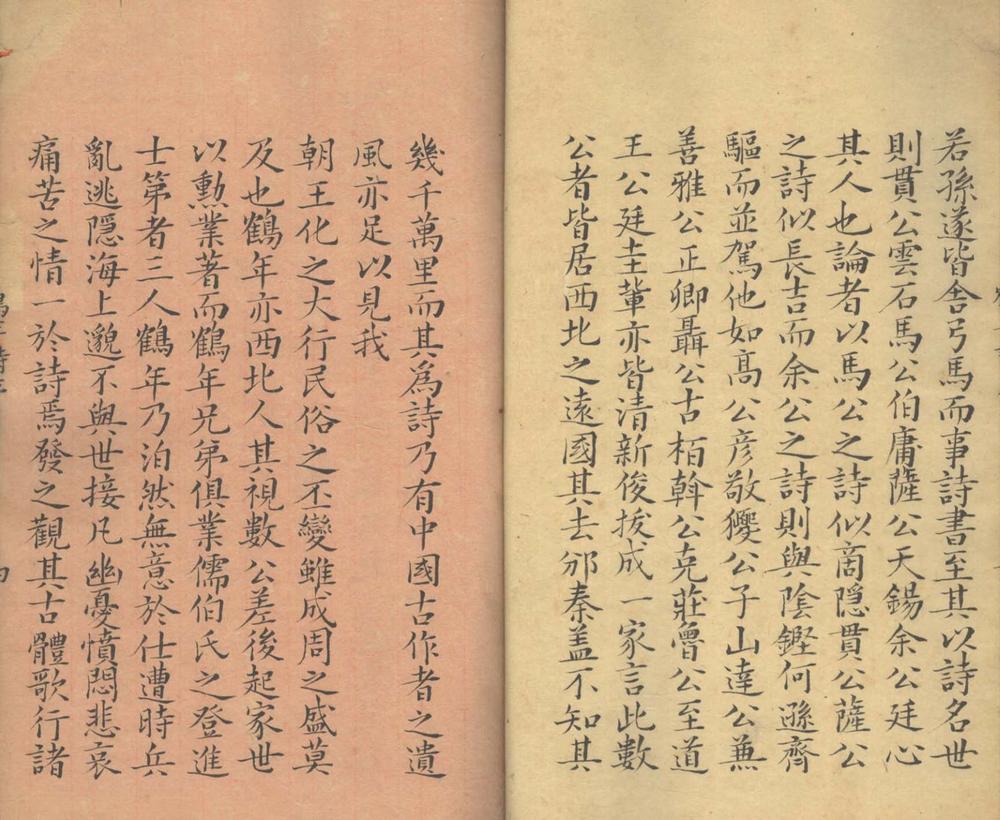 若孫遂皆舍弓馬而事詩書至其以詩名世
則貫公雲石馬公伯庸薩公天錫余公廷心
其人也論者以馬公之詩似商隐貫公薩公
之詩似長吉而余公之詩則與陰鏗何遜齊
驅而並駕他如高公彦敬㺜公子山達公兼
善雅公正卿聶公古栢斡公克莊魯公至道
王公廷圭輩亦皆清新俊拔成一家言此數
公者皆居西北之遠國其去邠秦盖不知其
幾千萬里而其為詩乃有中國古作者之遺
風亦足以見我
朝王化之大行民俗之丕變雖成周之盛莫
及也鶴年亦西北人其視數公差後起家世
以勳業著而鶴年兄弟俱業儒伯氏之登進
士第者三人鶴年乃泊然無意於仕遭時兵
亂逃隱海上邈不與世接凡幽憂憤悶悲哀
痛苦之情一於詩焉發之觀其古體歌行諸